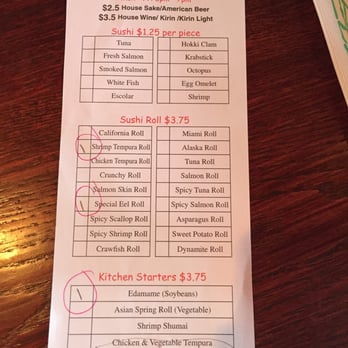 $2.5 House Sake/American Beer
$3.5 House Wine/ Kirin /Kirin Light
Sushi $1.25 per piece
Tuna Hokki Clam
Fresh Salmon Krabstick
Smoked Salmon Octopus
White Fish Egg Omelet
Escolar Shrimp
Sushi Roll $3.75
California Roll Miami Roll
\ Shrimp Tempura Roll Alaska Roll
Chicken Tempura Roll Tuna Roll
Crunchy Roll Salmon Roll
Salmon Skin Roll Spicy Tuna Roll
\ Special Eel Roll Spicy Salmon Roll
Spicy Scallop Roll Asparagus Roll
Spicy Shrimp Roll Sweet Potato Roll
Crawfish Roll Dynamite Roll
Kitchen Starters $3.75
\ Edamame (Soybeans)
Asian Spring Roll (Vegetable)
Shrimp Shumai
Chicken & Vegetable Tempura